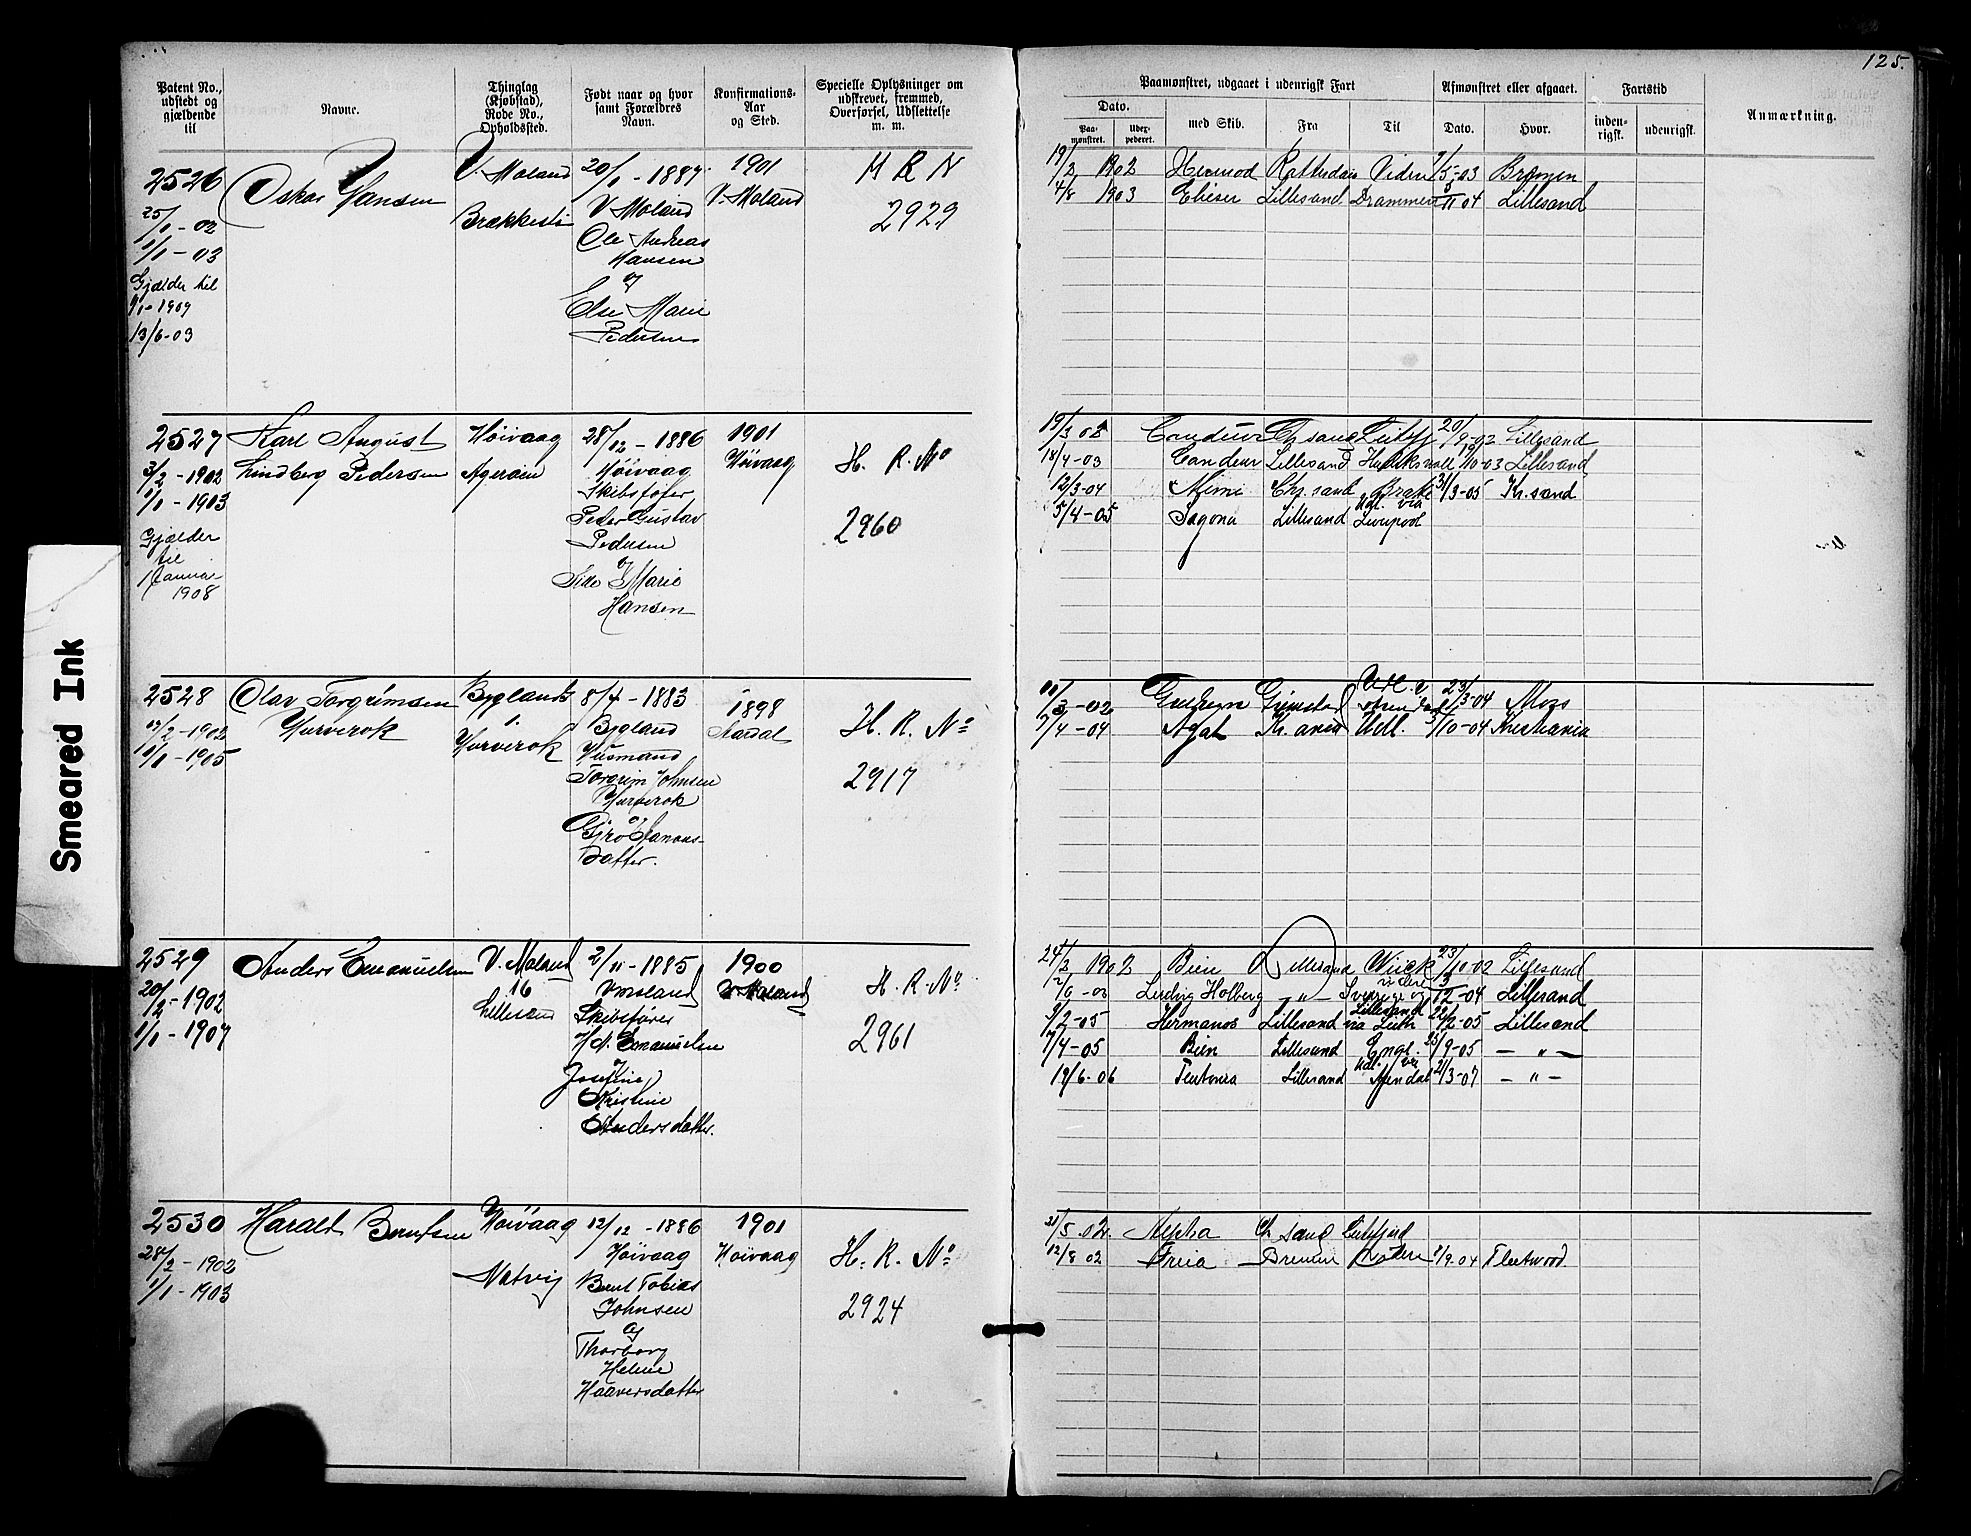 125.
Patent No., udstedt og gjældende til
Navne.
Thinglag (Kjøbstad), Rode No., Opholdssted.
Født naar og hvor samt Forældres Navn.
Konfirmations- Aar og Sted.
Specielle Oplysninger om udskrevet, fremmed, Overførsel, Udslettelse m. m.
Paamønstret, udgaaet i udenrigsk Fart
Dato.
Paa- mønstret.
Uder- pederet.
med Skib.
Fra
Til
Afmønstret eller afgaaet.
Dato.
Hvor.
Fartstid
inden- rigsk.
udenrigsk.
Anmærkning.
2526
25/1 - 02
1/1 - 03
Gjælder til
1/1 - 1907
13/6 - 03
Oskar Hansen
V. Moland
20/1 - 1887
V. Moland
Ole Andreas
Hansen
og
Else Marie
Pedersen
1901
V. Moland
H R N
2929
19/2 1902 Hermod Rotterdam 5-03 Bremen
4/8 1903 Elieser Lillesand Drammen 5/11 04 Lillesand
2527
3/2 - 1902
1/1 - 1903
Gjælder
til
1 Januar
1908
Karl August
Lindberg Pedersen
Høivaag
Agerøen
28/12 - 1886
Høivaag
Skibsfører
Peder Gustav
Pedersen
og
Marie
Hansen
1901
Høivaag
H. R. No
2960
19/3 02 Condeur Ch.sand 20/9-02 Lillesand
18/4-03 Condeur Lillesand 10-03 Lillesand
12/3-04 Mimi Chr.sand Brake 31/3-05 Kr.sand
5/4-05 Sagona Lillesand Udl. via
Liverpool
2528
17/2 - 1902
1/1 - 1905
Olav Torgrimsen
Hurverok
Byglands
Hurverok
8/4 - 1883
Bygland
Husmand
Torgrim Johnsen
Hurverok
og
Gjrø
Datter.
1898
Aardal
H. R. No
2917
3-02 Grimstad Udl. v
Arendal 23/3-04 Moss
7/4 - 04 Agat Kr.ania Udl. 3/10-04 Kristiania
2529
20/2 - 1902
1/1 - 1907
Anders Emanuelsen
V. Moland
16
2/11 - 1885
V Moland
Skibsfører
Emanuelsen
og
Josefine
Kristine
Andersdatter.
1900
V Moland
H. R. No
2961
24/2 1902 Bien Lillesand Wiick 23/10-02 Lillesand
Ludvig Holberg - " - Sverige og 12-04 Lillesand
3/2-05 Hermanos Lillesand Lillesand
via Leith 22/2-05 Lillesand
7/4-05 Bien Lillesand Engl. 25/9-05 - " -
19/6-06 Teutonia Lillesand Udl. via
Arendal 21/3-07 - " -
2530
28/2 - 1902
1/1 - 1903
Harald Berntsen
Høivaag
Natvig
12/12 - 1886
Høivaag
Bernt Tobias
Johnsen
og
Thorborg
Helene
Haaversdatter
1901
Høivaag
H. R. No
2924
21/5 02. Alpha Ch.sand
12/8 02 Freia Bremen 9.04 Fleetwood.
Smeared Ink